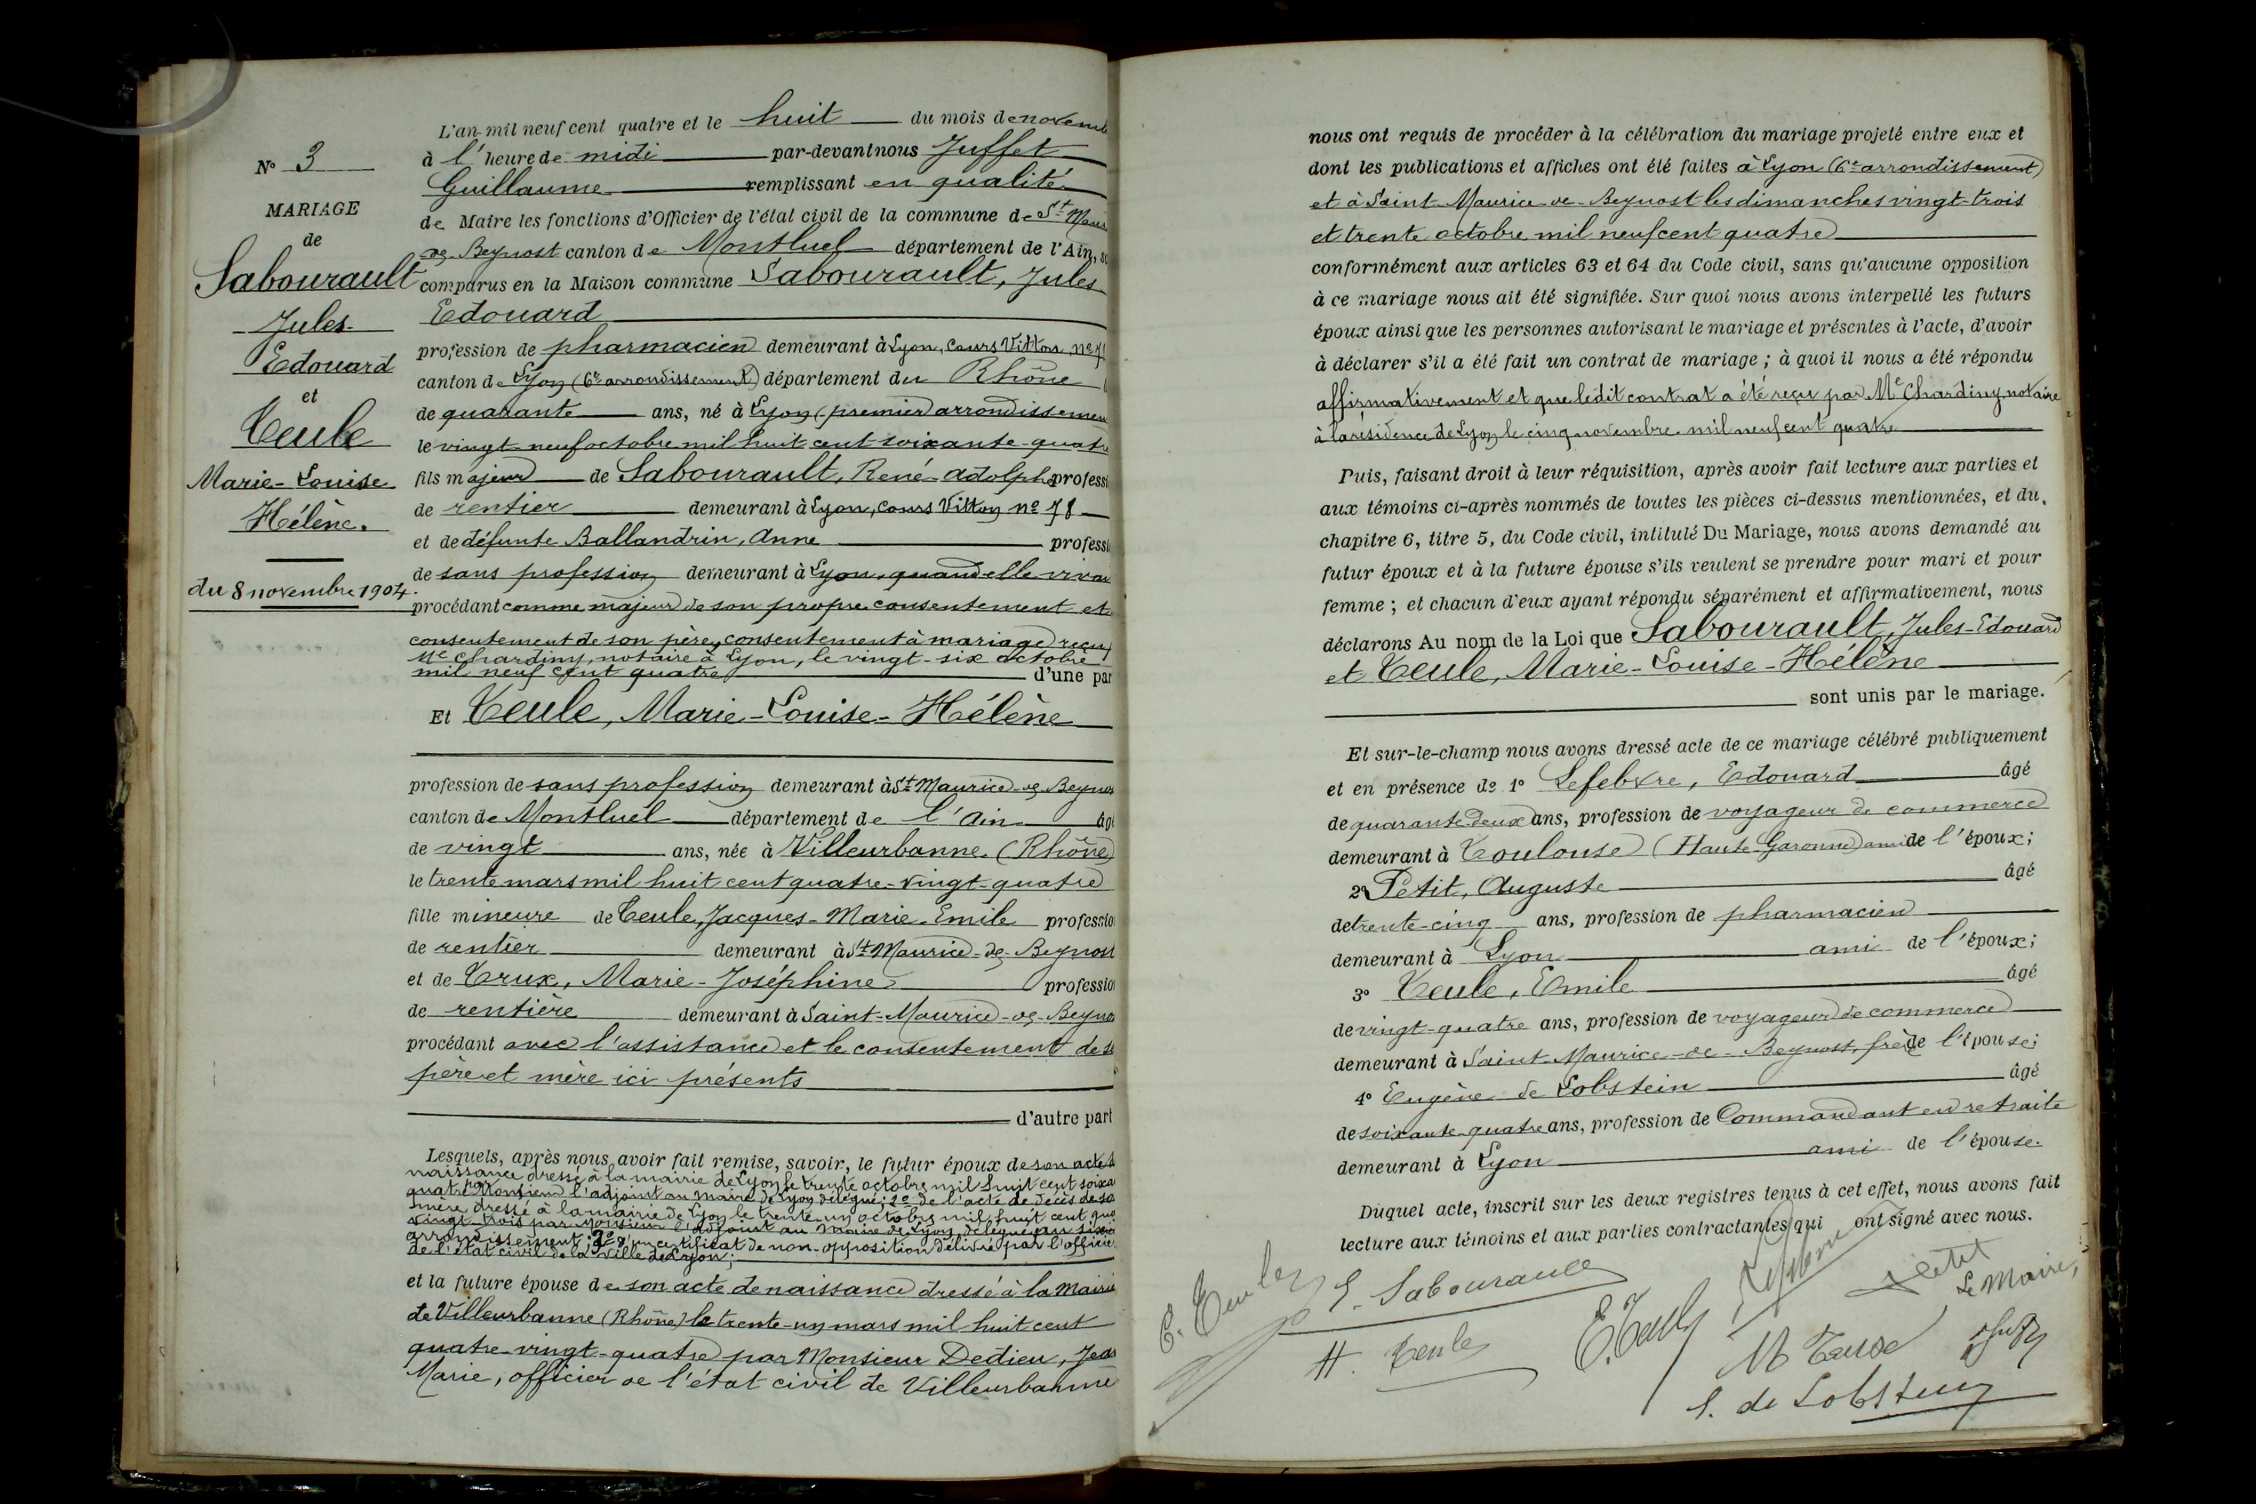 N° 3
MARIAGE
de
Sabourault
Jules
Edouard
et
Teule
Marie-Louise
Hélène.
du 8 novembre 1904.
L'an mil neuf cent quatre et le huit du mois de novemb
à l'heure de midi par-devant nous Juffet
Guillaume remplissant en qualité
de Maire les fonctions d'Officier de l'état civil de la commune de St Mauri
de Beynost canton de Montluel département de l'Ain, so
comparus en la Maison commune Sabourault, Jules
Edouard
profession de pharmacien demeurant à Lyon, cours Vitton n° 78
canton de Lyon (6e arrondissement) département du Rhône
de quarante ans, né à Lyon (premier arrondissemen
le vingt-neuf octobre mil huit cent soixante-quatre
fils majeur de Sabourault, René-Adolphe professi
de rentier demeurant à Lyon, cours Vitton n° 78
et de défunte Ballandrin, Anne professi
de sans profession demeurant à Lyon, quand elle vivai
procédant comme majeur de son propre consentement et
consentement de son père, consentement à mariage reçu
Me Chardiny, notaire à Lyon, le vingt-six octobre
mil neuf cent quatre d'une par
Et Teule, Marie-Louise-Hélène
profession de sans profession demeurant à St Maurice-de-Beynos
canton de Montluel département de l'Ain âgé
de vingt ans, née à Villeurbanne (Rhône)
le trente mars mil huit cent quatre-vingt-quatre
fille mineure de Teule, Jacques-Marie-Emile professio
de rentier demeurant à St Maurice-de-Beynost
et de Trux, Marie-Joséphine profession
de rentière demeurant à Saint-Maurice-de-Beyno
procédant avec l'assistance et le consentement de s
père et mère ici présents
d'autre part
Lesquels, après nous avoir fait remise, savoir, le futur époux de son acte d
naissance dressé à la mairie de Lyon le trente octobre mil huit cent soixa
quatre par Monsieur l'adjoint au maire de Lyon délégué; 2° de l'acte de décès de sa
mère, dressé à la mairie de Lyon le trente-un octobre mil huit cent qua
vingt-trois par Monsieur l'adjoint au maire de Lyon, délégué au sixiè
arrondissement; 3° d'un certificat de non-opposition délivré par l'officie
de l'état civil de la ville de Lyon;
et la future épouse de son acte de naissance dressé à la mairie
de Villeurbanne (Rhône) le trente-un mars mil huit cent
quatre-vingt-quatre par Monsieur Dedieu, Jean
Marie, officier de l'état civil de Villeurbanne
nous ont requis de procéder à la célébration du mariage projeté entre eux et
dont les publications et affiches ont été faites à Lyon (6e arrondissement)
et à Saint-Maurice-de-Beynost les dimanches vingt-trois
et trente octobre mil neuf cent quatre
conformément aux articles 63 et 64 du Code civil, sans qu'aucune opposition
à ce mariage nous ait été signifiée. Sur quoi nous avons interpellé les futurs
époux ainsi que les personnes autorisant le mariage et présentes à l'acte, d'avoir
à déclarer s'il a été fait un contrat de mariage; à quoi il nous a été répondu
affirmativement et que ledit contrat a été reçu par Me Chardiny notaire
à la résidence de Lyon le cinq novembre mil neuf cent quatre
Puis, faisant droit à leur réquisition, après avoir fait lecture aux parties et
aux témoins ci-après nommés de toutes les pièces ci-dessus mentionnées, et du
chapitre 6, titre 5, du Code civil, intitulé Du Mariage, nous avons demandé au
futur époux et à la future épouse s'ils veulent se prendre pour mari et pour
femme; et chacun d'eux ayant répondu séparément et affirmativement, nous
déclarons Au nom de la Loi que Sabourault, Jules-Edouard
et Teule, Marie-Louise-Hélène
sont unis par le mariage.
Et sur-le-champ nous avons dressé acte de ce mariage célébré publiquement
et en présence de 1° Lefebvre, Edouard âgé
de quarante-deux ans, profession de voyageur de commerce
demeurant à Toulouse (Haute-Garonne) ami de l'époux;
2° Petit, Auguste âgé
de trente-cinq ans, profession de pharmacien
demeurant à Lyon ami de l'époux;
3° Teule, Emile âgé
de vingt-quatre ans, profession de voyageur de commerce
demeurant à Saint-Maurice-de-Beynost, frère de l'épouse;
4° Eugène de Lobstein âgé
de soixante-quatre ans, profession de Commandant en retraite
demeurant à Lyon ami de l'épouse.
Duquel acte, inscrit sur les deux registres tenus à cet effet, nous avons fait
lecture aux témoins et aux parties contractantes qui ont signé avec nous.
E. Teule
E. Sabourault
Lefebvre
Petit
Le Maire,
H. Teule
E. Teule
M Teule
Juffet
E. de Lobstein